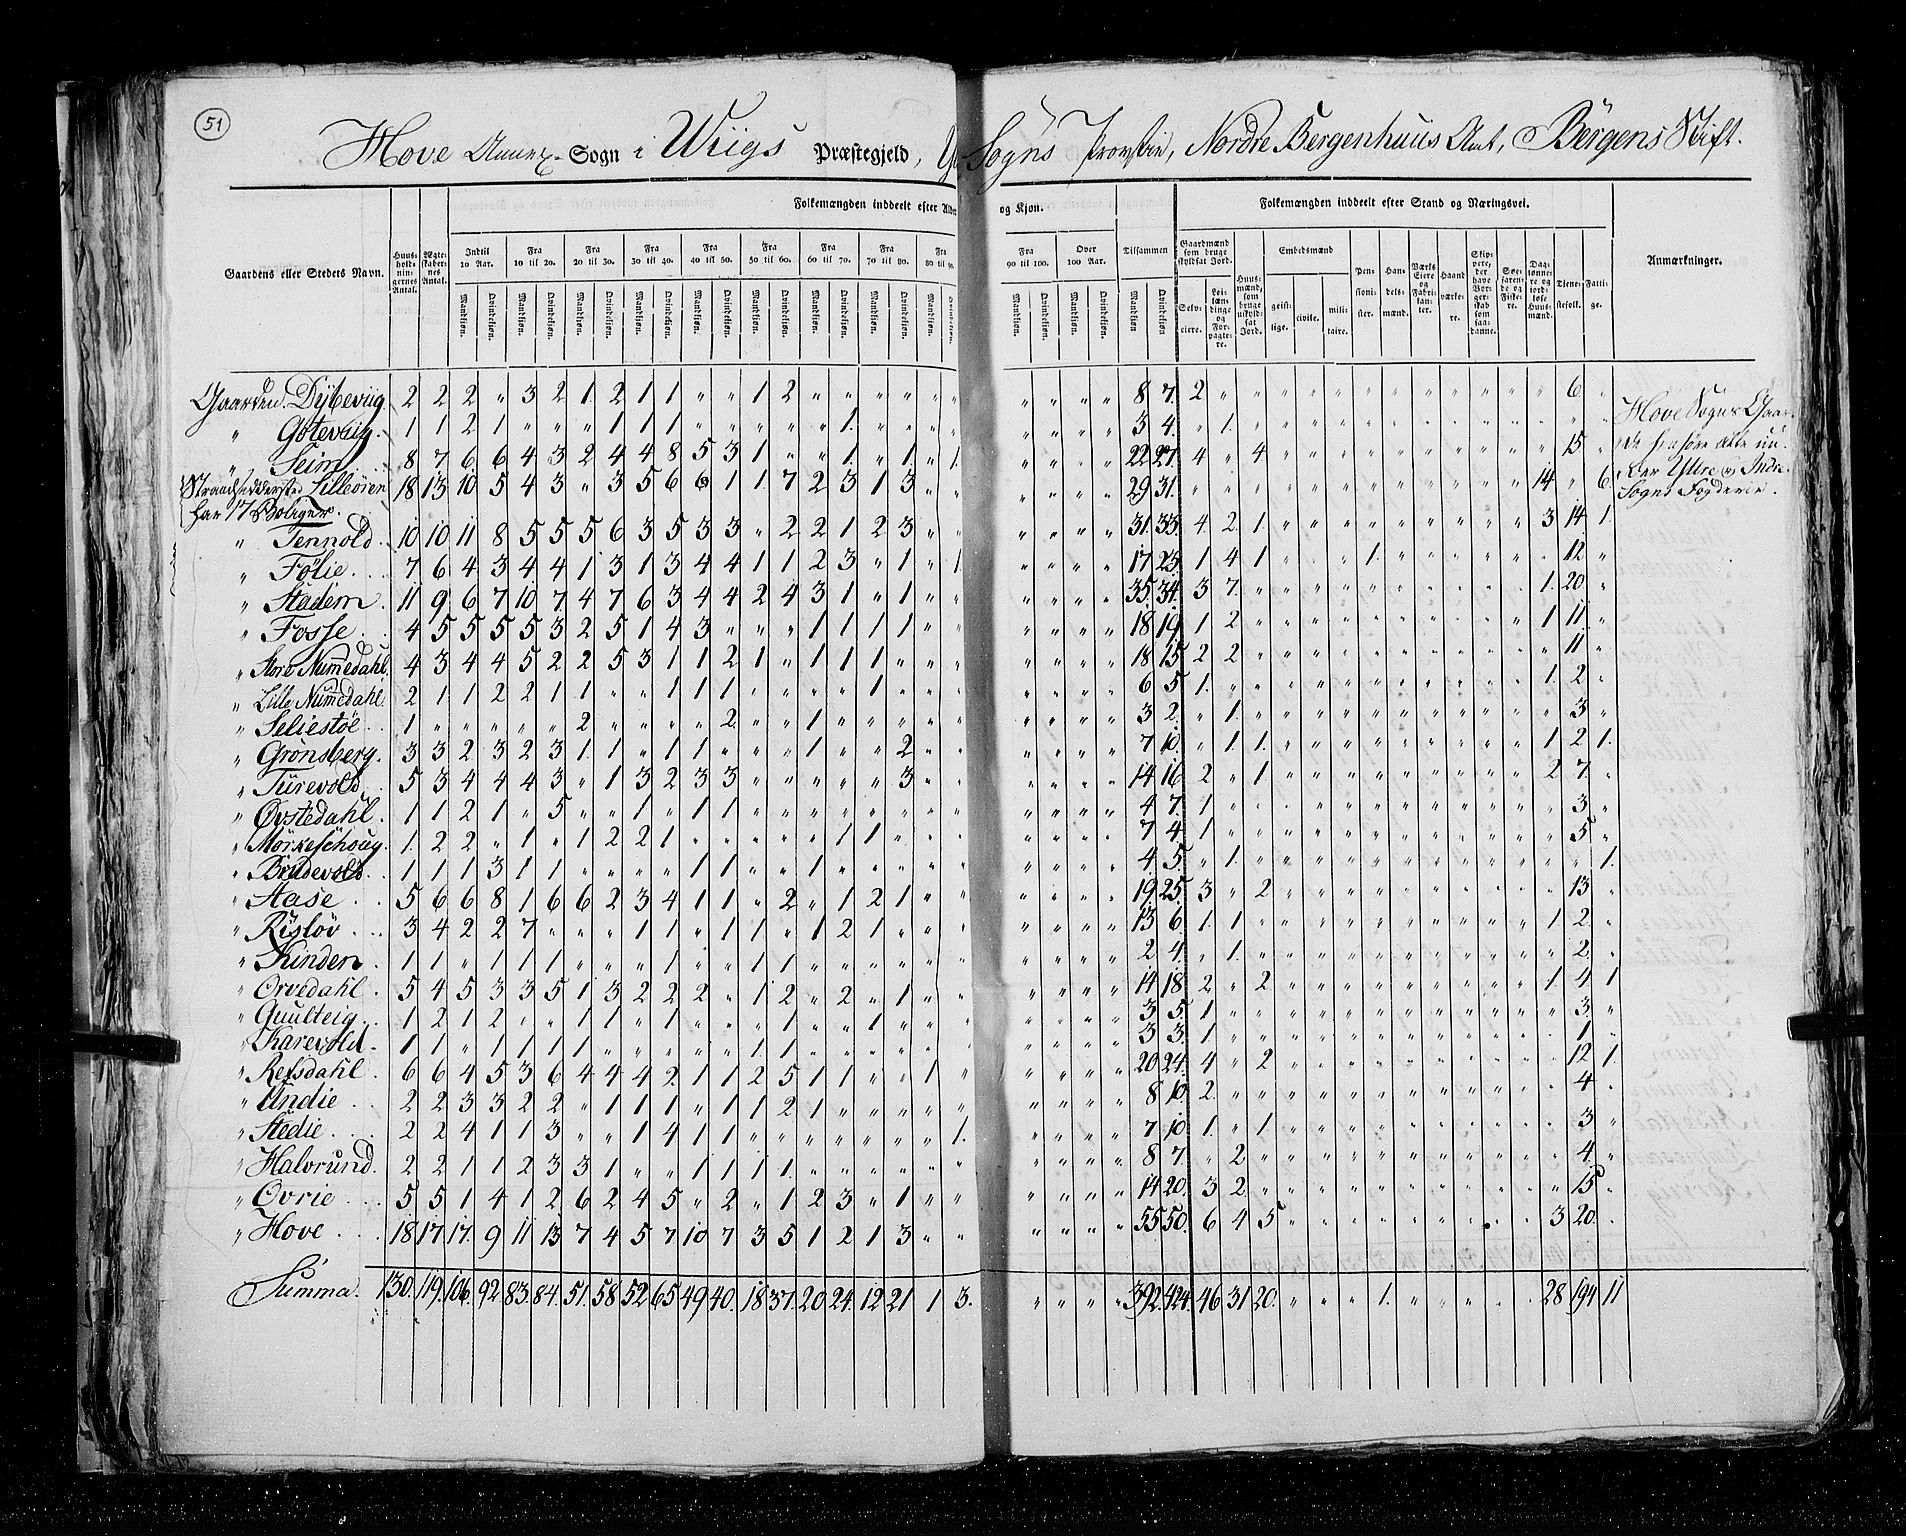 51
Hove Annex- Sogn i Wiigs Præstegjeld, Sogns Provstie, Nordre Bergenhuus Amt, Bergens Stift.
Folkemængden inddeelt efter Alder og Kjøn. Folkemængden inddeelt efter Stand og Næringsvei.
Gaardens eller Stedets Navn. Huusholdningernes Antal. Ægteskabernes Antal. Indtil 10 Aar. Fra 10 til 20. Fra 20 til 30. Fra 30 til 40. Fra 40 til 50. Fra 50 til 60. Fra 60 til 70. Fra 70 til 80. Fra 80 til 90. Fra 90 til 100. Over 100 Aar. Tilsammen Gaardmænd som bruge skyldsat Jord. Huusmænd, som bruge uskyldsat Jord. Embedsmænd Pensionister. Handelsmænd. Værks Eiere og Fabrikanter. Haandværkere. Skippere, der have Borgerskab som saadanne. Søefarende og Fiskere. Daglønnere og jordløse Huusmænd. Tjenestefolk. Fattige. Anmærkninger.
Mandkjøn. Qvindekjøn. Mandkjøn. Qvindekjøn. Mandkjøn. Qvindekjøn. Mandkjøn. Qvindekjøn. Mandkjøn. Qvindekjøn. Mandkjøn. Qvindekjøn. Mandkjøn. Qvindekjøn. Mandkjøn. Qvindekjøn. Mandkjøn. Qvindekjøn. Mandkjøn. Qvindekjøn. Mandkjøn. Qvindekjøn. Mandkjøn Qvindekjøn. Selveiere. Leilændinge og Forpagtere. geistlige. civile. militaire.
Gaarden Dybeviig 2 2 2 " 3 2 1 2 1 1 " " 1 2 " " " " " " " " " " 8 7 2 " " " " " " " " " " " " 6 "
" Gotevig 1 1 2 1 " " " 1 1 1 " " " " " 1 " " " " " " " " 3 4 " 1 " " " " " " " " " " " " "
" Seim 8 7 6 6 4 3 2 4 4 8 5 3 1 " " 1 " 1 " 1 " " " " 22 27 4 " 4 " " " " " " " " " " 15 "
Strandsiddersted Lilleøren 18 13 10 5 4 3 " 3 5 6 6 1 1 7 2 3 1 3 " " " " " " 29 31 " " " " " " " " " " " " 14 " 6
har 17 Boliger.
" Tennold 10 10 11 8 5 5 5 6 3 5 3 3 " 2 2 1 2 3 " " " " " " 31 33 4 2 1 " " " " " " " " " 3 14 1
" Følie 7 6 4 3 4 4 1 3 1 3 4 4 1 1 2 3 " 1 " 1 " " " " 17 23 1 4 1 " " " 1 " " " " " " 12 "
" Stadem 11 9 6 7 10 7 4 7 6 3 4 4 2 4 3 1 " 1 " " " " " " 35 34 3 7 " " " " " " " " " " 1 20 "
" Fosse 4 5 5 5 5 3 2 5 1 4 3 " " " 1 1 1 1 " " " " " " 18 19 1 2 " " " " " " " " " " 1 11 "
" Store Numedahl 4 3 4 4 5 2 2 5 3 1 1 2 1 " 1 1 1 " " " " " " " 18 15 2 2 " " " " " " " " " " " 11 "
" Lille Numedahl 2 1 1 2 2 1 1 " " 1 1 1 " " " " 1 " " " " " " " 6 5 1 " " " " " " " " " " " 1 2 "
" Seliestøe 1 " " " " " 2 " " " " 2 " " 1 " " " " " " " " " 3 2 " 1 " " " " " " " " " " " 3 "
" Grønsberg 3 3 2 3 2 3 1 1 " 1 1 " " " 1 " " 2 " " " " " " 7 10 " 1 1 " " " " " " " " " 1 2 1
" Turevold 5 3 4 4 4 3 " 1 3 2 3 3 " " " " " 3 " " " " " " 14 16 2 " 1 " " " " " " " " " 2 7 "
" Øvstedahl 1 1 2 1 " 5 " " 1 " 1 1 " " " " " " " " " " " " 4 7 1 " " " " " " " " " " " " 3 "
" Mørkeschoug 1 2 2 " 1 " 1 2 2 1 " " " " " 1 1 " " " " " " " 7 4 1 " " " " " " " " " " " " 5 "
" Brudevold 1 1 1 3 1 1 " " " " 1 1 " " 1 " " " " " " " " " 4 5 " 1 " " " " " " " " " " " " 1
" Aase 5 6 6 8 1 6 6 2 3 4 1 1 " 2 " 1 2 1 " " " " " " 19 25 3 " 2 " " " " " " " " " " 13 "
" Risløv 3 4 2 2 7 " " " 1 1 " 1 1 " 1 2 1 " " " " " " " 13 6 1 1 " " " " " " " " " " 1 2 "
" Hinden 1 1 " 1 1 1 " " " 1 " " " 1 1 " " " " " " " " " 2 4 " 1 " " " " " " " " " " " 2 "
" Orvedahl 5 4 5 3 3 5 1 3 2 2 2 " 1 2 " 2 " 1 " " " " " " 14 18 2 " 2 " " " " " " " " " 1 4 1
" Quulteig 1 2 1 2 " " 1 1 " 1 " " " 1 " " 1 " " " " " " " 3 5 1 " " " " " " " " " " " " 3 "
" Karevold 1 1 " 1 1 1 1 " " " " " 1 1 " " " " " " " " " " 3 3 1 " " " " " " " " " " " " 1 "
" Refsdahl 6 6 4 5 3 6 4 4 4 2 1 1 2 5 1 1 " " 1 " " " " " 20 24 4 " 2 " " " " " " " " " " 12 1
" Undie 2 2 3 3 2 2 " 1 1 1 " 1 1 2 1 " " " " " " " " " 8 10 2 " " " " " " " " " " " " 4 "
" Stedie 2 2 4 1 1 3 " " 1 4 1 1 " " " " " " " 1 " " " " 7 10 1 " 1 " " " " " " " " " " 3 "
" Halvrund 2 2 1 1 2 3 3 1 " " 1 1 1 1 " " " " " " " " " " 8 7 " 2 " " " " " " " " " " " 4 "
" Ovrie 5 5 1 4 1 2 6 2 4 5 " 2 " 1 2 3 " 1 " " " " " " 14 20 3 2 " " " " " " " " " " " 15 "
" Hove 18 17 17 9 11 13 7 4 5 7 10 7 3 5 1 2 1 3 " " " " " " 55 50 6 4 5 " " " " " " " " " 3 20 "
Summa 130 119 106 92 83 84 51 58 52 65 49 40 18 37 20 24 12 21 1 3 " " " " 392 424 46 31 20 " " " 1 " " " " " 28 194 11
Hove Sogns Gaar-
de henhøre alle un-
der Yttre og Indre
Sogns Fogderie.